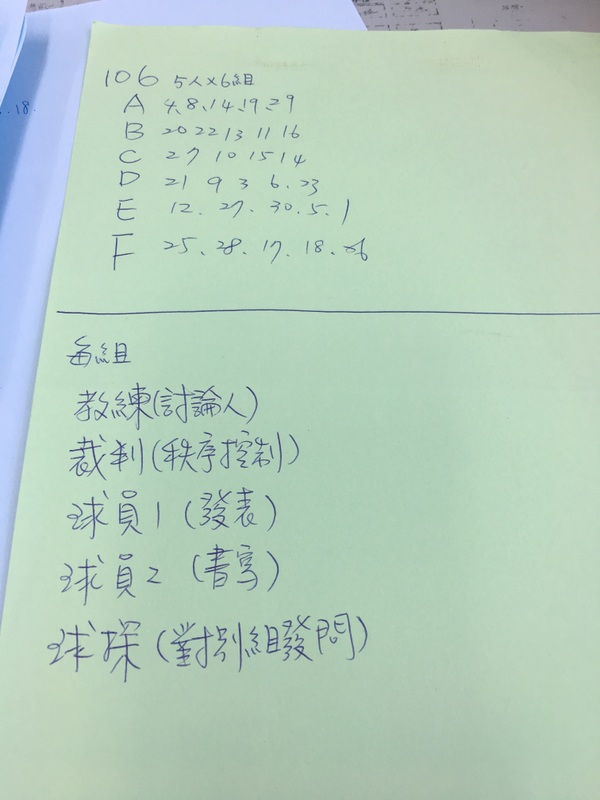 106 5人×6組
A 4、8、14、19、29
B 20 22 13 11 16
C 2 7 10 15 14
D 21 9 3 6、23
E 12、27、30、5、1
F 25、28、17、18、26
每組
教練(討論人)
裁判(秩序控制)
球員1(發表)
球員2(書寫)
球探(對別組發問)
18.